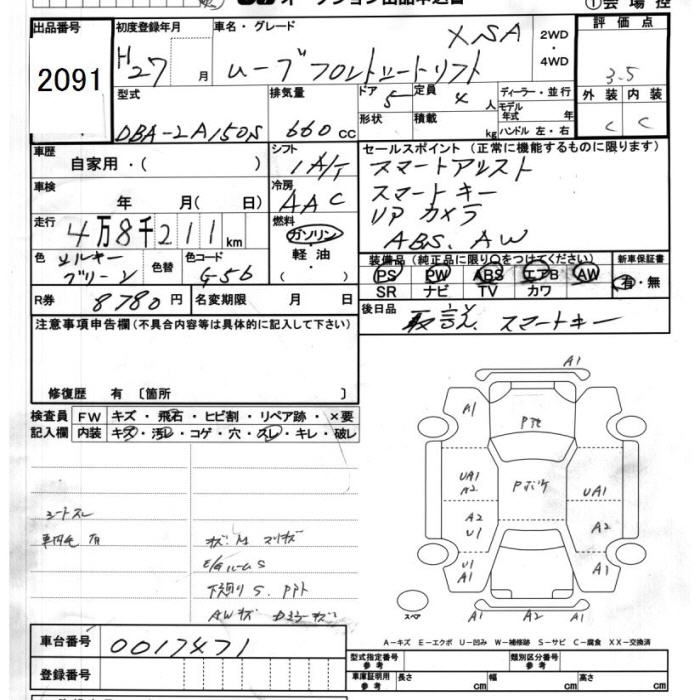 ①会場控
出品番号
2091
初度登録年月
H27 月
車名・グレード
ムーブフロントシートリフト XSA
2WD・4WD
評価点
3.5
外装 内装
C C
型式
DBA-LA150S
排気量
660 cc
ドア 5
形状
定員 4 人
積載 kg
ディーラー・並行
モデル年式 年
ハンドル 左・右
車歴
自家用・( )
シフト
1A/T
車検
年 月( 日)
冷房
AAC
走行
4万8千211km
燃料
ガソリン
軽油・
( )
色
ソルキーグリーン
色替
色コード
G56
R券
8780円
名変期限 月 日
セールスポイント(正常に機能するものに限ります)
スマートアシスト
スマートキー
UPカメラ
ABS、AW
装備品(純正品に限り○をつけてください)
PS PW ABS エアB AW
SR ナビ TV カワ
新車保証書
有・無
後日品
取説、スマートキー
注意事項申告欄(不具合内容等は具体的に記入して下さい)
修復歴 有〔箇所 〕
検査員記入欄
FW キズ・飛石・ヒビ割・リペア跡・×要
内装 キズ・汚レ・コゲ・穴・スレ・キレ・破レ
シートスレ
キズ、M マリキズ
E/gルームS
下廻りS、
AWキズ
A1
A1
A1
Pボケ
UA1
A2
UA1
A2
U1
A2
U1
A1
A1
A1 A2 A1
スペア
A-キズ E-エクボ U-凹み W-補修跡 S-サビ C-腐食 XX-交換済
車台番号
0017471
登録番号
型式指定番号
参考
類別区分番号
参考
車庫証明用
参考
長さ cm
幅 cm
高さ cm